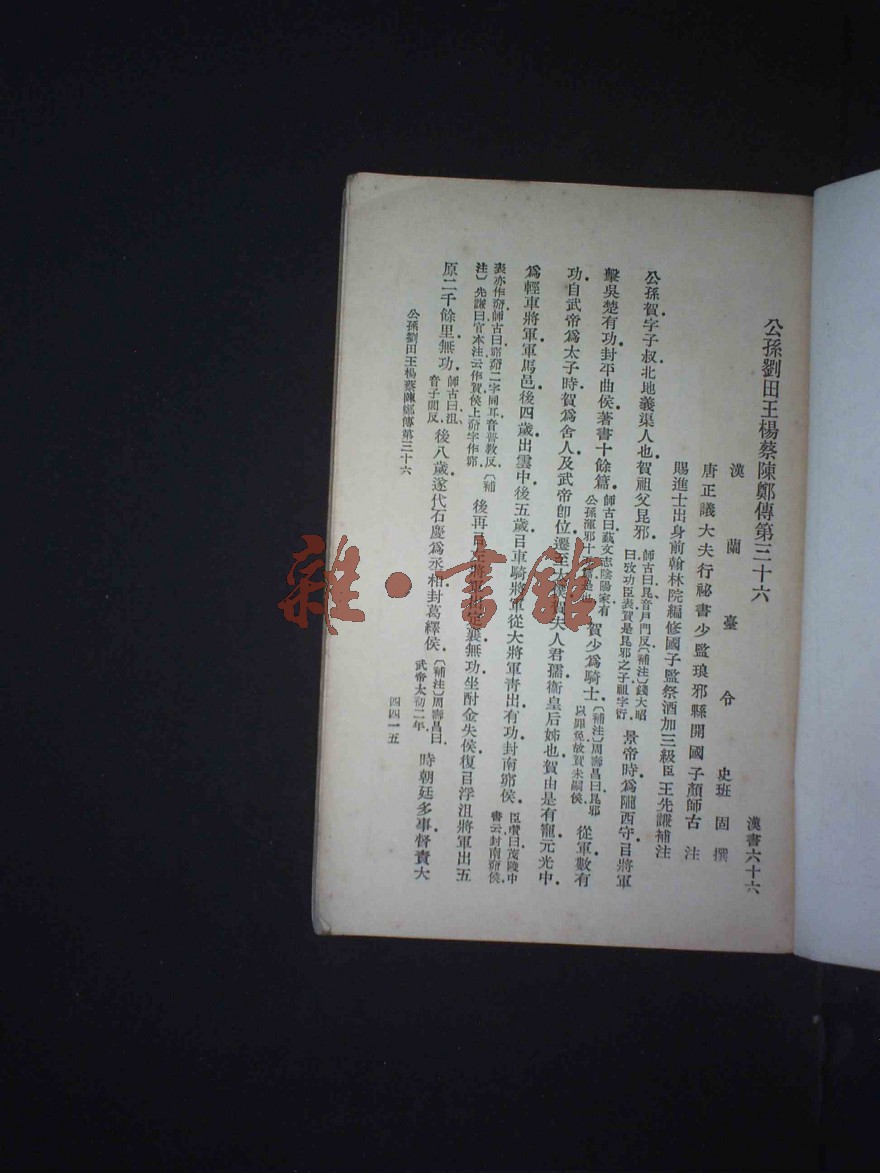 公孫劉田王楊蔡陳鄭傳第三十六
漢書六十六
漢蘭臺令史班固撰
唐正議大夫行祕書少監琅邪縣開國子顏師古注
賜進士出身前翰林院編修國子監祭酒加三級臣王先謙補注
公孫賀字子叔北地義渠人也賀祖父昆邪師古曰昆音戶門反〔補注〕錢大昭曰攷功臣表賀是昆邪之子祖字衍景帝時爲隴西守㠯將軍
擊吳楚有功封平曲侯著書十餘篇師古曰蓺文志陰陽家有公孫渾邪十五篇是也賀少爲騎士〔補注〕周壽昌曰昆邪以罪免故賀未嗣侯從軍數有
功自武帝爲太子時賀爲舍人及武帝卽位遷至太僕賀夫人君孺衞皇后姊也賀由是有寵元光中
爲輕車將軍軍馬邑後四歲出雲中後五歲㠯車騎將軍從大將軍青出有功封南窌侯臣瓚曰茂陵中書云封南窌侯
表亦作窌師古曰窌窌二字同耳音普敎反〔補注〕先謙曰官本注云作賀侯上窌字作窌後再㠯左將軍出定襄無功坐酎金失侯復㠯浮沮將軍出五
原二千餘里無功師古曰沮音子閭反後八歲遂代石慶爲丞相封葛繹侯〔補注〕周壽昌曰武帝太初二年時朝廷多事督責大
公孫劉田王楊蔡陳鄭傳第三十六
四四一五
雜·書館